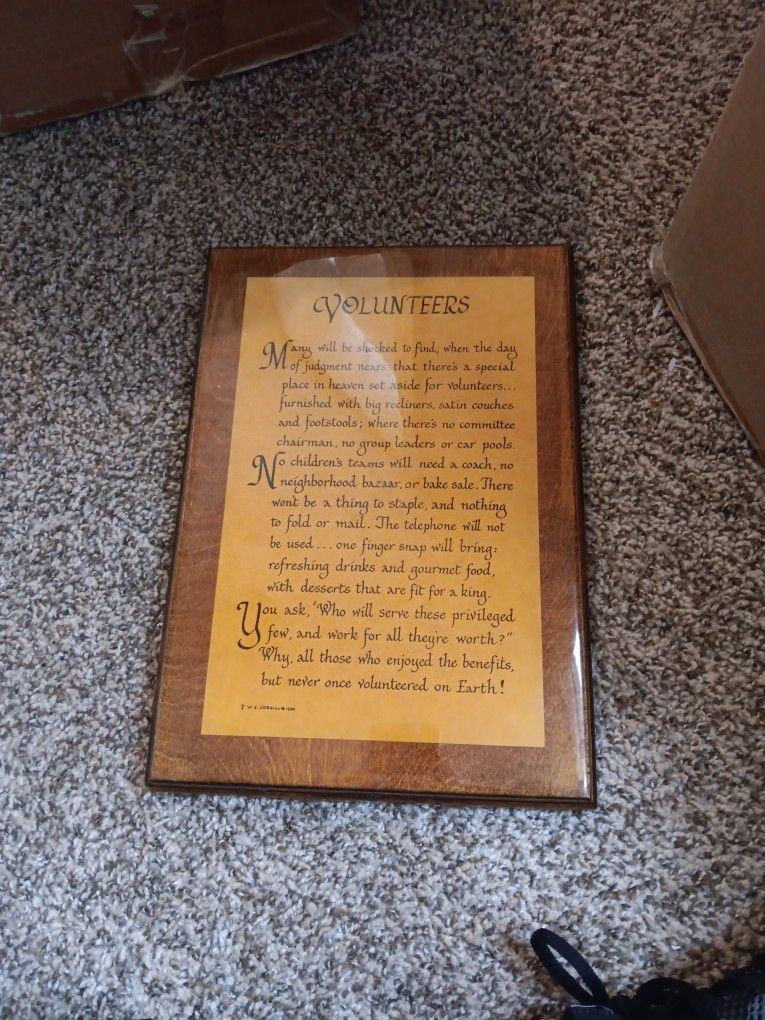 VOLUNTEERS
Many will be shocked to find, when the day
of judgment nears, that there's a special
place in heaven set aside for volunteers...
furnished with big recliners, satin couches
and footstools; where there's no committee
chairman, no group leaders or car pools.
No children's teams will need a coach, no
neighborhood bazaar, or bake sale. There
won't be a thing to staple, and nothing
to fold or mail. The telephone will not
be used... one finger snap will bring:
refreshing drinks and gourmet food,
with desserts that are fit for a king.
You ask, "Who will serve these privileged
few, and work for all they're worth?"
Why, all those who enjoyed the benefits,
but never once volunteered on Earth!